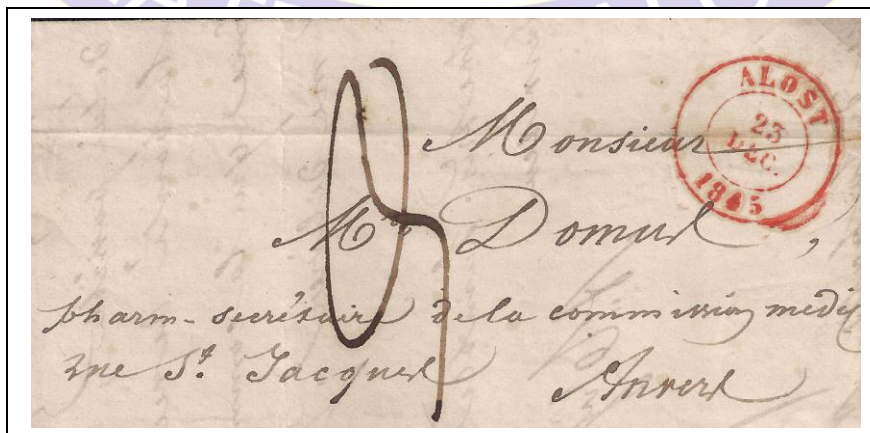 ALOST
23
DEC.
1845
Monsieur
Mr Domus,
pharm-secrétaire de la commission medic
rue St. Jacques
Anvers